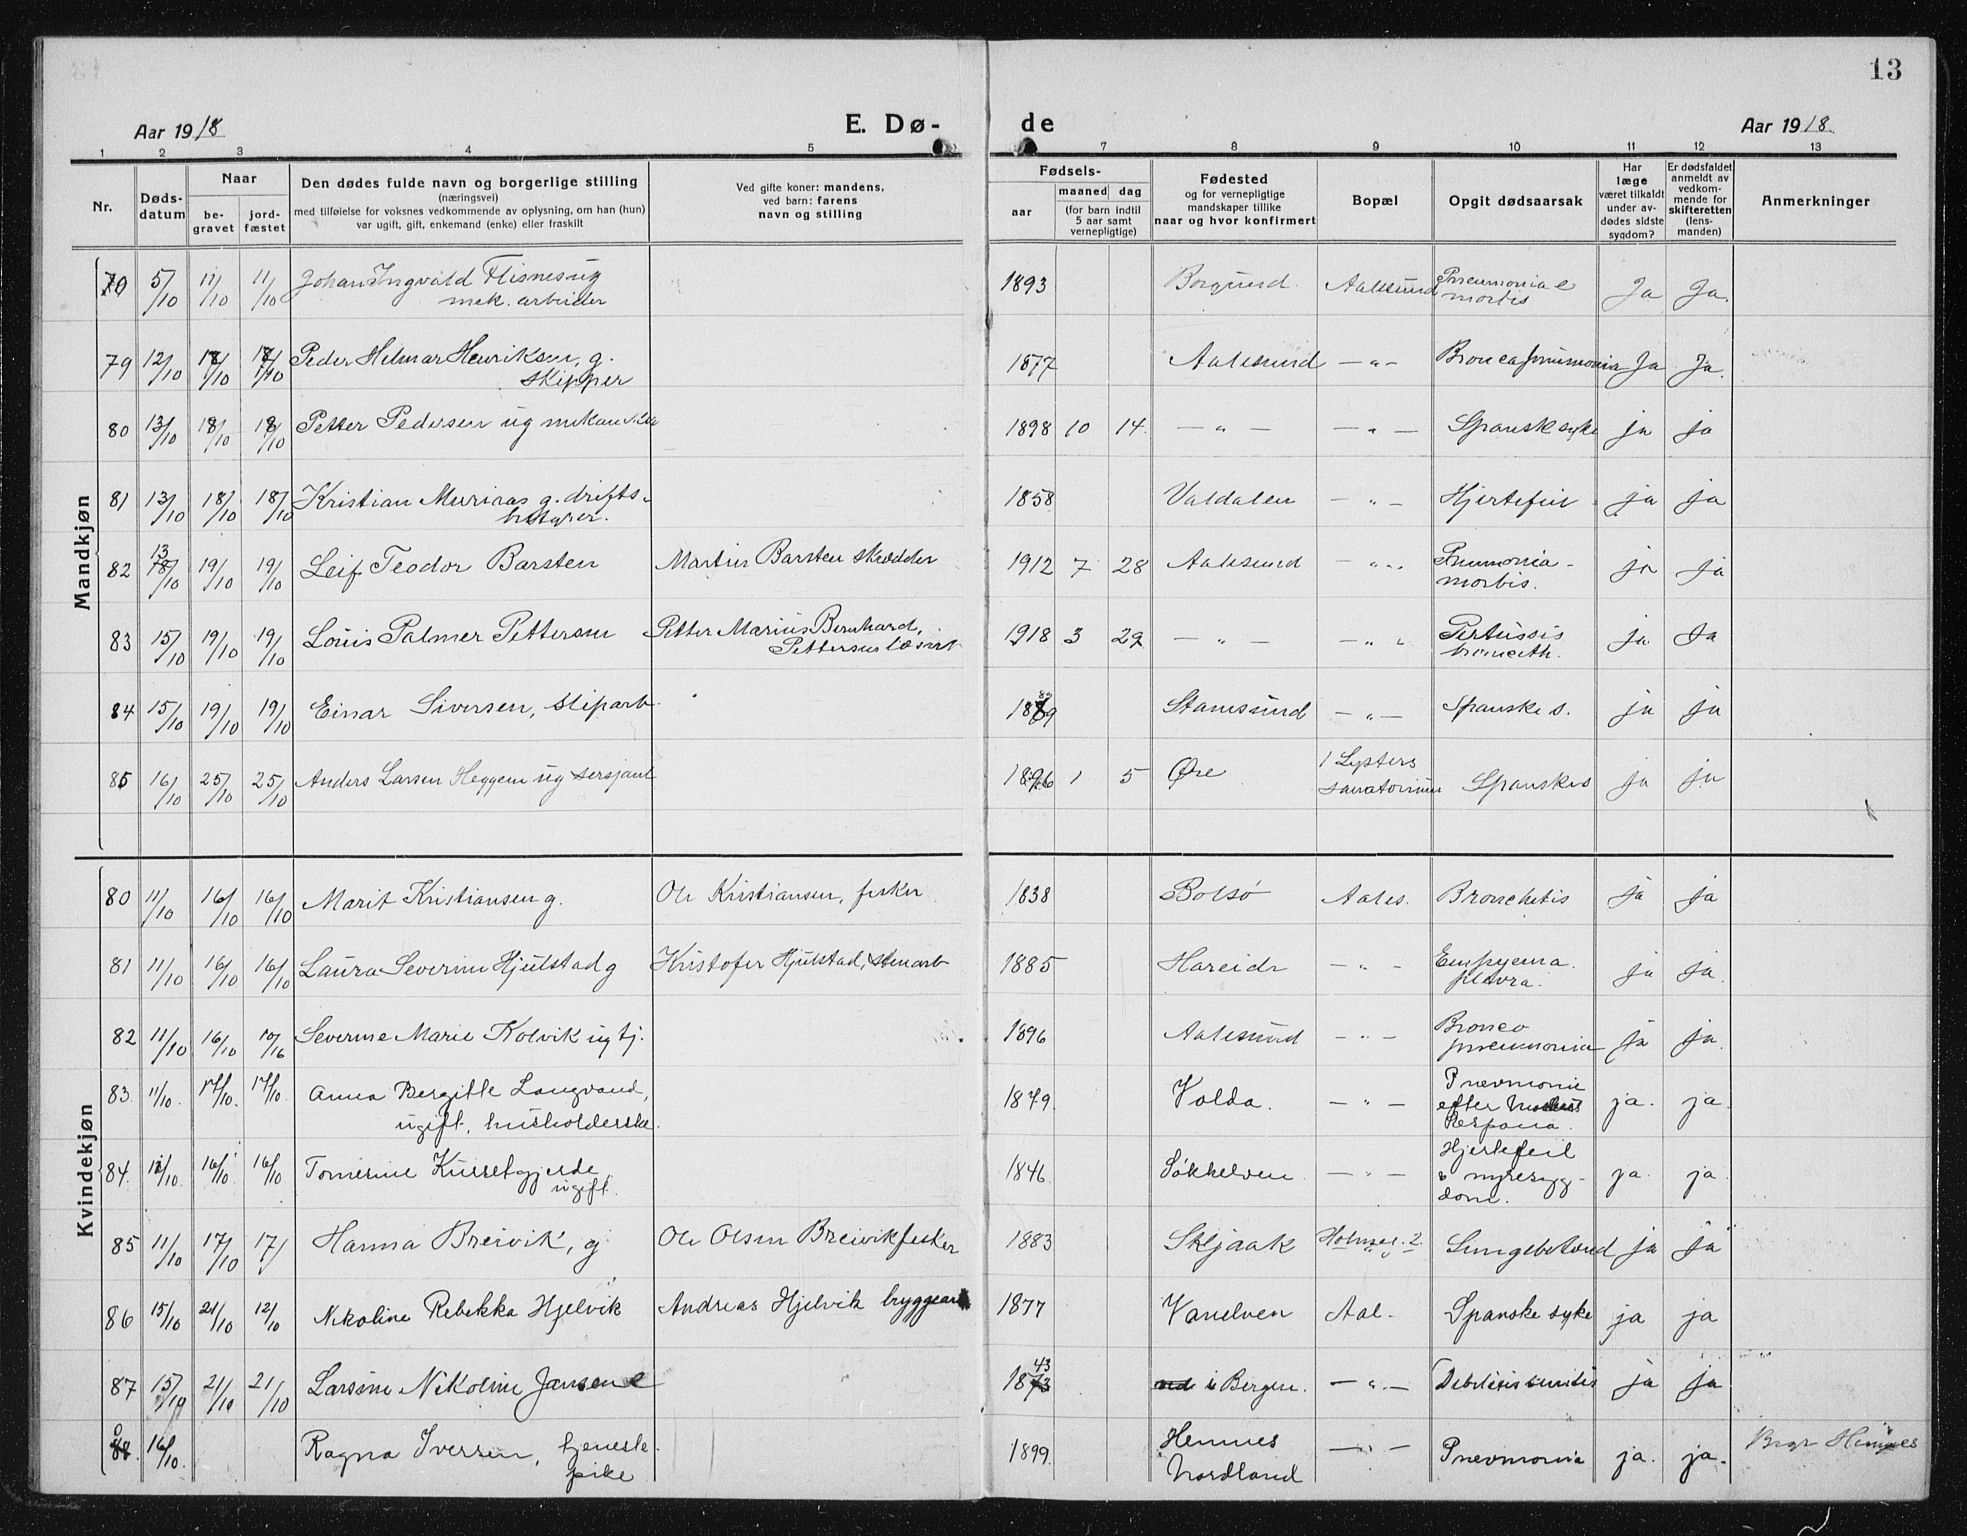 13
Aar 1918 E. Dø- de Aar 1918.
1 2 3 4 5 7 8 9 10 11 12 13
Nr. Døds-datum Naar be-gravet jord-fæstet Den dødes fulde navn og borgerlige stilling (næringsvei) med tilføielse for voksnes vedkommende av oplysning, om han (hun) var ugift, gift, enkemand (enke) eller fraskilt Ved gifte koner: mandens, ved barn: farens navn og stilling Fødsels- aar maaned dag (for barn indtil 5 aar samt vernepligtige) Fødested og for vernepligtige mandskaper tillike naar og hvor konfirmert Bopæl Opgit dødsaarsak Har læge været tilkaldt under av-dødes sidste sygdom? Er dødsfaldet anmeldt av vedkom-mende for skifteretten (lens-manden) Anmerkninger
Mandkjøn
5/10 11/10 11/10 Johan Ingvald Flisnes ug mek. arbeider 1893 Borgund Aalesund Pneumonia e morbis Ja Ja.
79 12/10 18/10 18/10 Peder Hilmar Henriksen, g. skipper 1877 Aalesund — „ — Ja Ja.
80 13/10 18/10 18/10 Petter Pedersen ug 1898 10 14. — „ — — „ — Spansk syke ja ja
81 13/10 18/10 18/10 Kristian g. drifts-bestyrer. 1858 Valdalen — „ — Hjertefeil ja ja
82 13/10 19/10 19/10 Leif Teodor Barsten Martin Barsten skrædder 1912 7 28 Aalesund — „ — Pnumonia - morbis. ja ja
83 15/10 19/10 19/10 Louis Palmer Pettersen Petter Marius Bernhard, Pettersen 1918 3 29 — „ — — „ — Pertussis ja ja
84 15/10 19/10 19/10 Einar Siversen, sliparb. Stamsund — „ — Spanske s. ja ja
85 16/10 25/10 25/10 Anders Larsen Heggem ug sersjant 1896 1 5 Øre Lysters sanatorium Spanske s ja ja
Kvindekjøn
80 11/10 16/10 16/10 Marit Kristiansen g. Ole Kristiansen, fisker 1838 Bolsø Aales. Bronchitis ja ja
81 11/10 16/10 16/10 Laura Severine Hjulstad g Kristofer Hjulstad, stenarb 1885 Hareide — „ — Empyema. plevra. ja ja.
82 11/10 16/10 10/16 Severine Marie Kolvik ug tj. 1896 Aalesund — „ — Bronco pneumonia ja ja.
83. 11/10. 17/10. 17/10. Anna Bergitte Langvand, ugift, husholderske. 1849. Volda. — „ — Pnevmonie efter ja. ja.
84. 11/10. 16/10 16/10 Tomerine ugift. 1846. Søkkelven. — „ — Hjertefeil & nyresyg-dom. ja. ja.
85 11/10 17/10 17/ Hanna Breivik, g Ole Olsen Breivik fisker 1883 Skjaak Holmgt. 2. Lungebetænd ja ja
86 15/10 21/10 12/10 Nikoline Rebekka Hjelvik Andreas Hjelvik bryggearb 1877 Vanelven Aal- Spanske syke ja ja
87 15/10 21/10 21/10 Larsine Nikoline Jansen 1843 i Bergen. — „ — Debilitis senilis ja ja
88. 16/10. Ragna Iversen, tjeneste-pike 1899. Hemnes Nordland — „ — Pnevmonia ja. ja. Hemnes